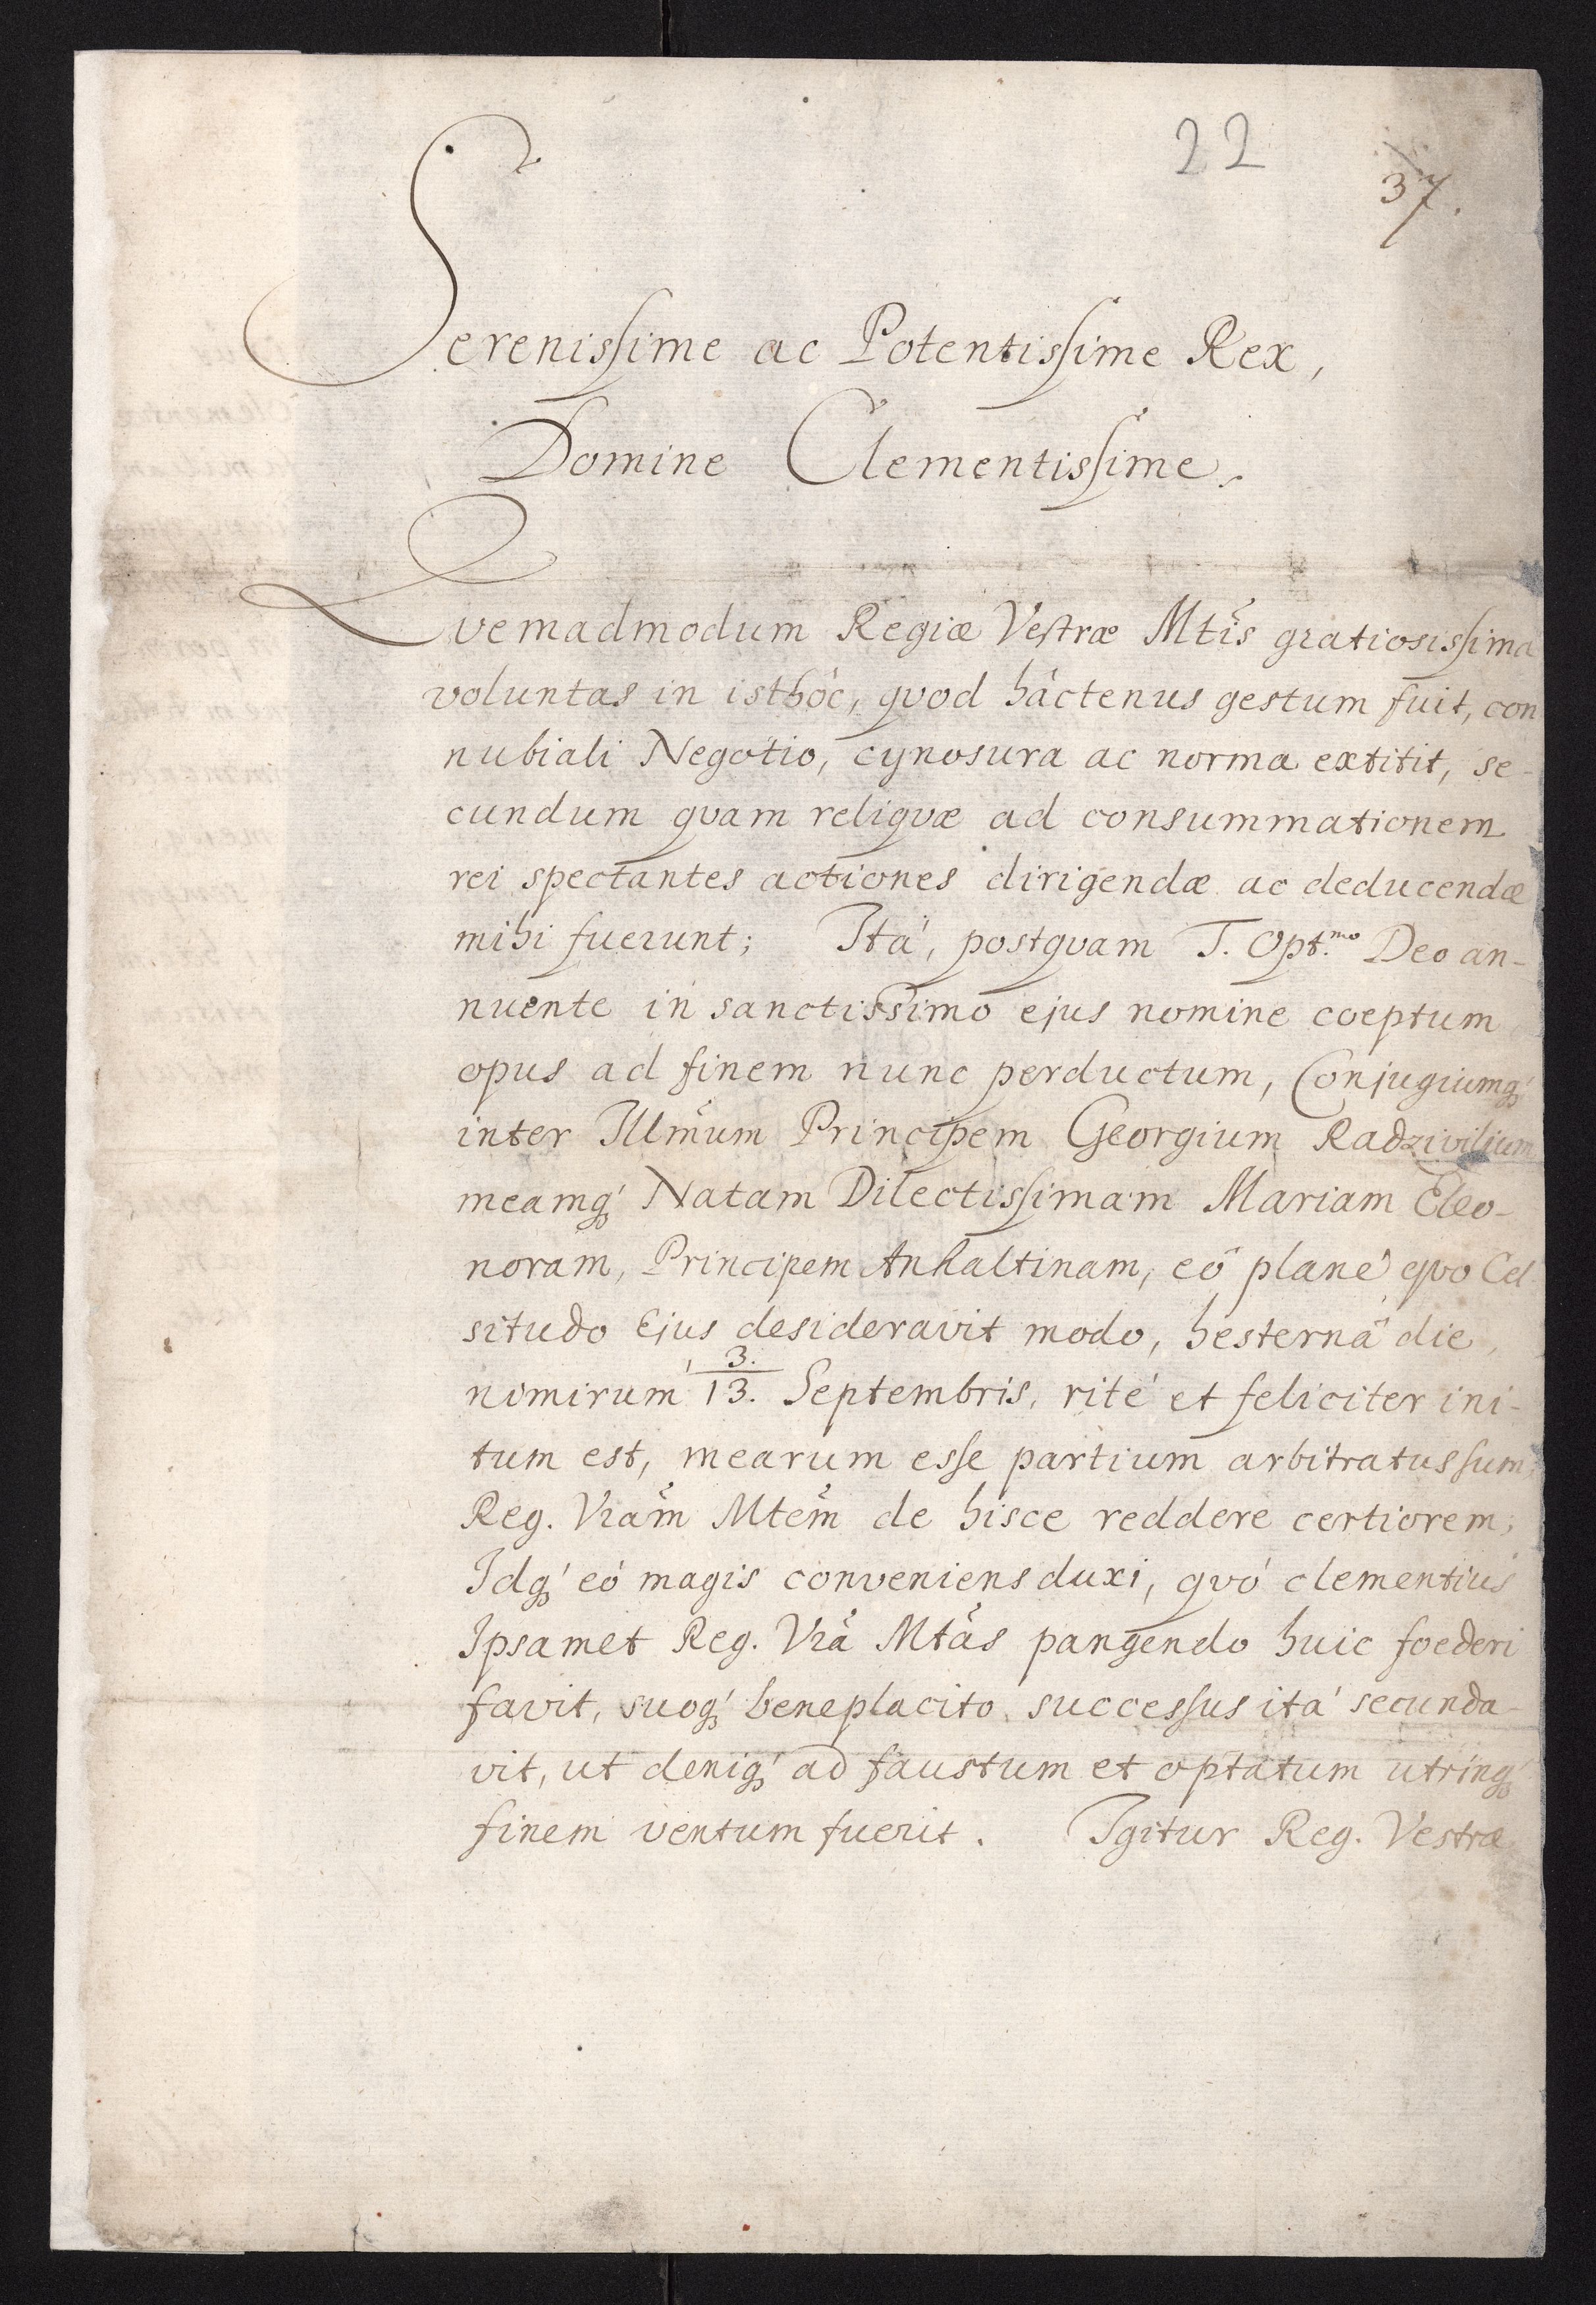 22
37.
Serenissime ac Potentissime Rex,
Domine Clementissime.
Qvemadmodum Regiæ Vestræ Mtis̃ gratiosissima
voluntas in isthôc, qvod hâctenus gestum fuit, con
nubiali Negotio, cynosura ac norma extitit, se-
cundum qvam reliqvæ ad consummationem
rei spectantes actiones dirigendæ ac deducendæ
mihi fuerunt; Ità, postqvam T. Opt.mo Deo an-
nuente in sanctissimo ejus nomine coeptum
opus ad finem nunc perductum, Conjugiumq́
inter Illm̃um Principem Georgium Radzivilium
meamq́ Natam Dilectissimam Mariam Eleo-
noram, Principem Anhaltinam, eô planè qvo Cel
situdo Ejus desideravit modo, hesternâ die,
nimirum 3./13. Septembris, ritè et feliciter ini-
tum est, mearum esse partium arbitratus sum,
Reg. Vram̃ Mtem̃ de hisce reddere certiorem;
Idq́ eò magis conveniens duxi, qvò clementius
Ipsamet Reg. Vrã Mtãs pangendo huic foederi
favit, suoq́ beneplacito successus ità secunda-
vit, ut deniq́ ad faustum et optatum utrinq́
finem ventum fuerit. Igitur Reg. Vestræ